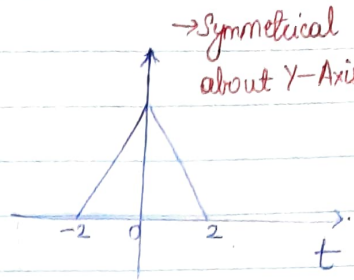 →Symmetrical
about Y-Axis
-2 0 2
t